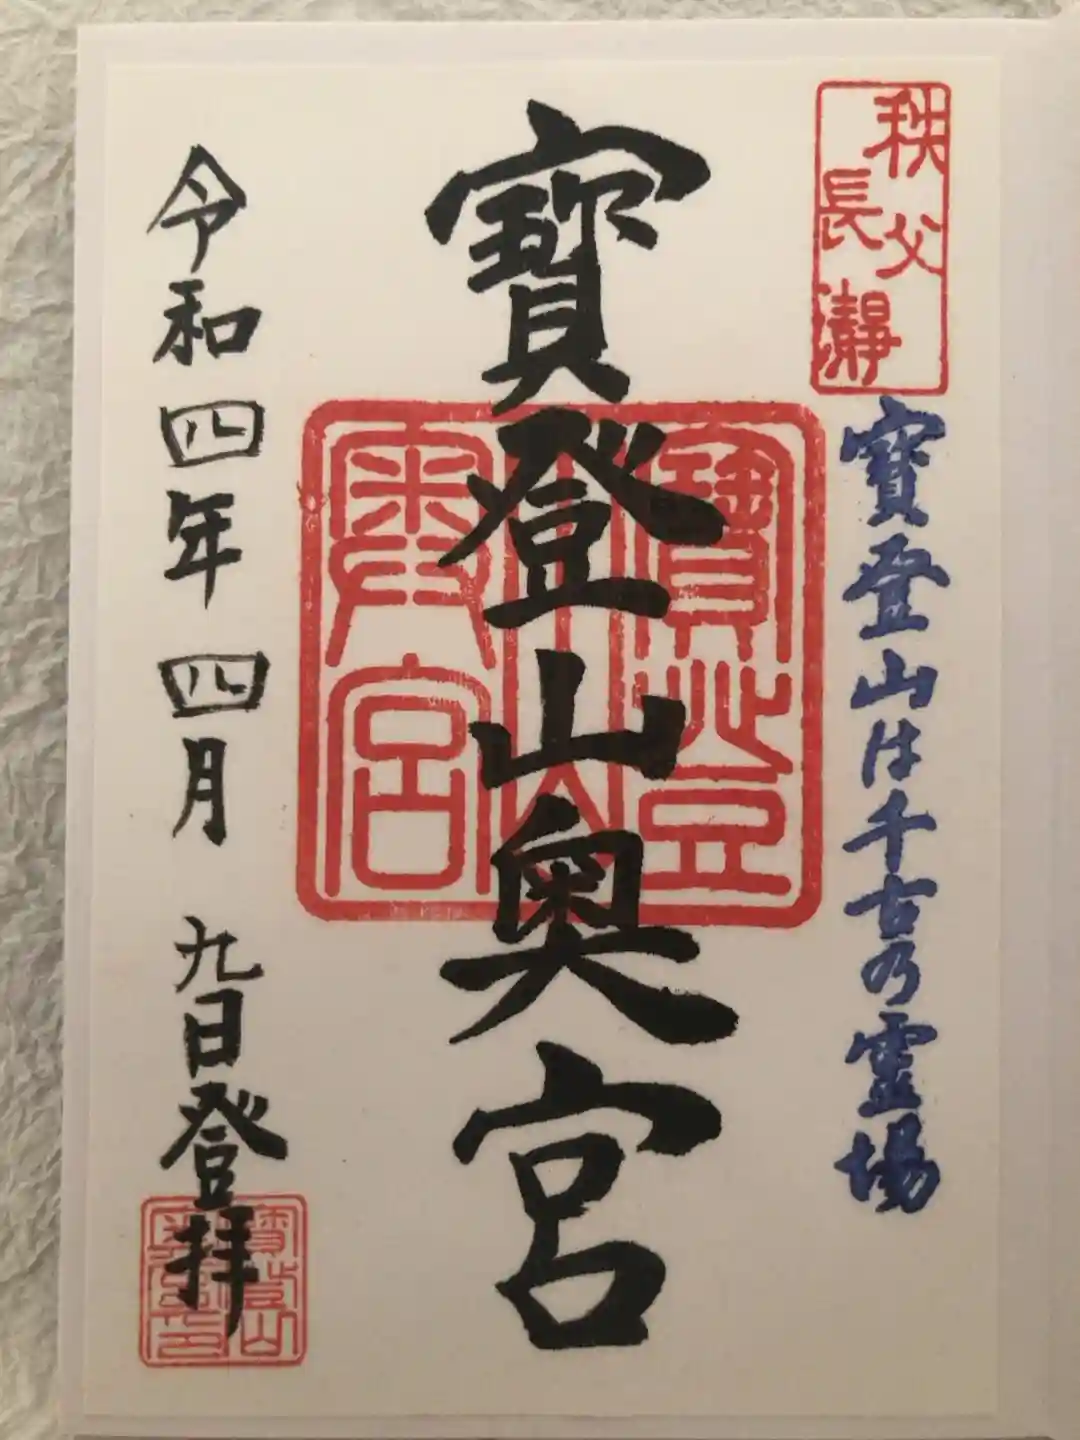 秩父
長瀞
寶登山は千古乃霊場
寶登山奥宮
寶登
山
奥宮
令和四年四月九日登拝
寶登山
奥宮印